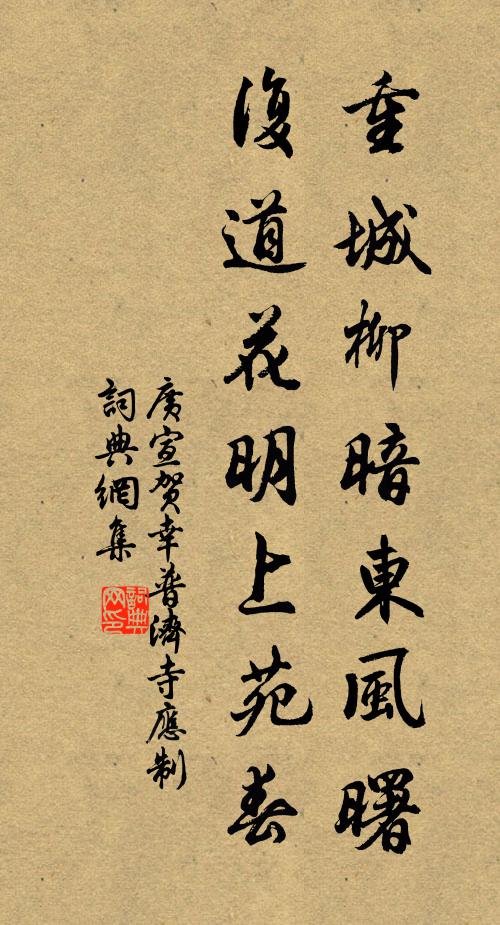 重城柳暗東風曙
復道花明上苑春
廣宣賀幸普濟寺應制
詞典網集
詞典
网印